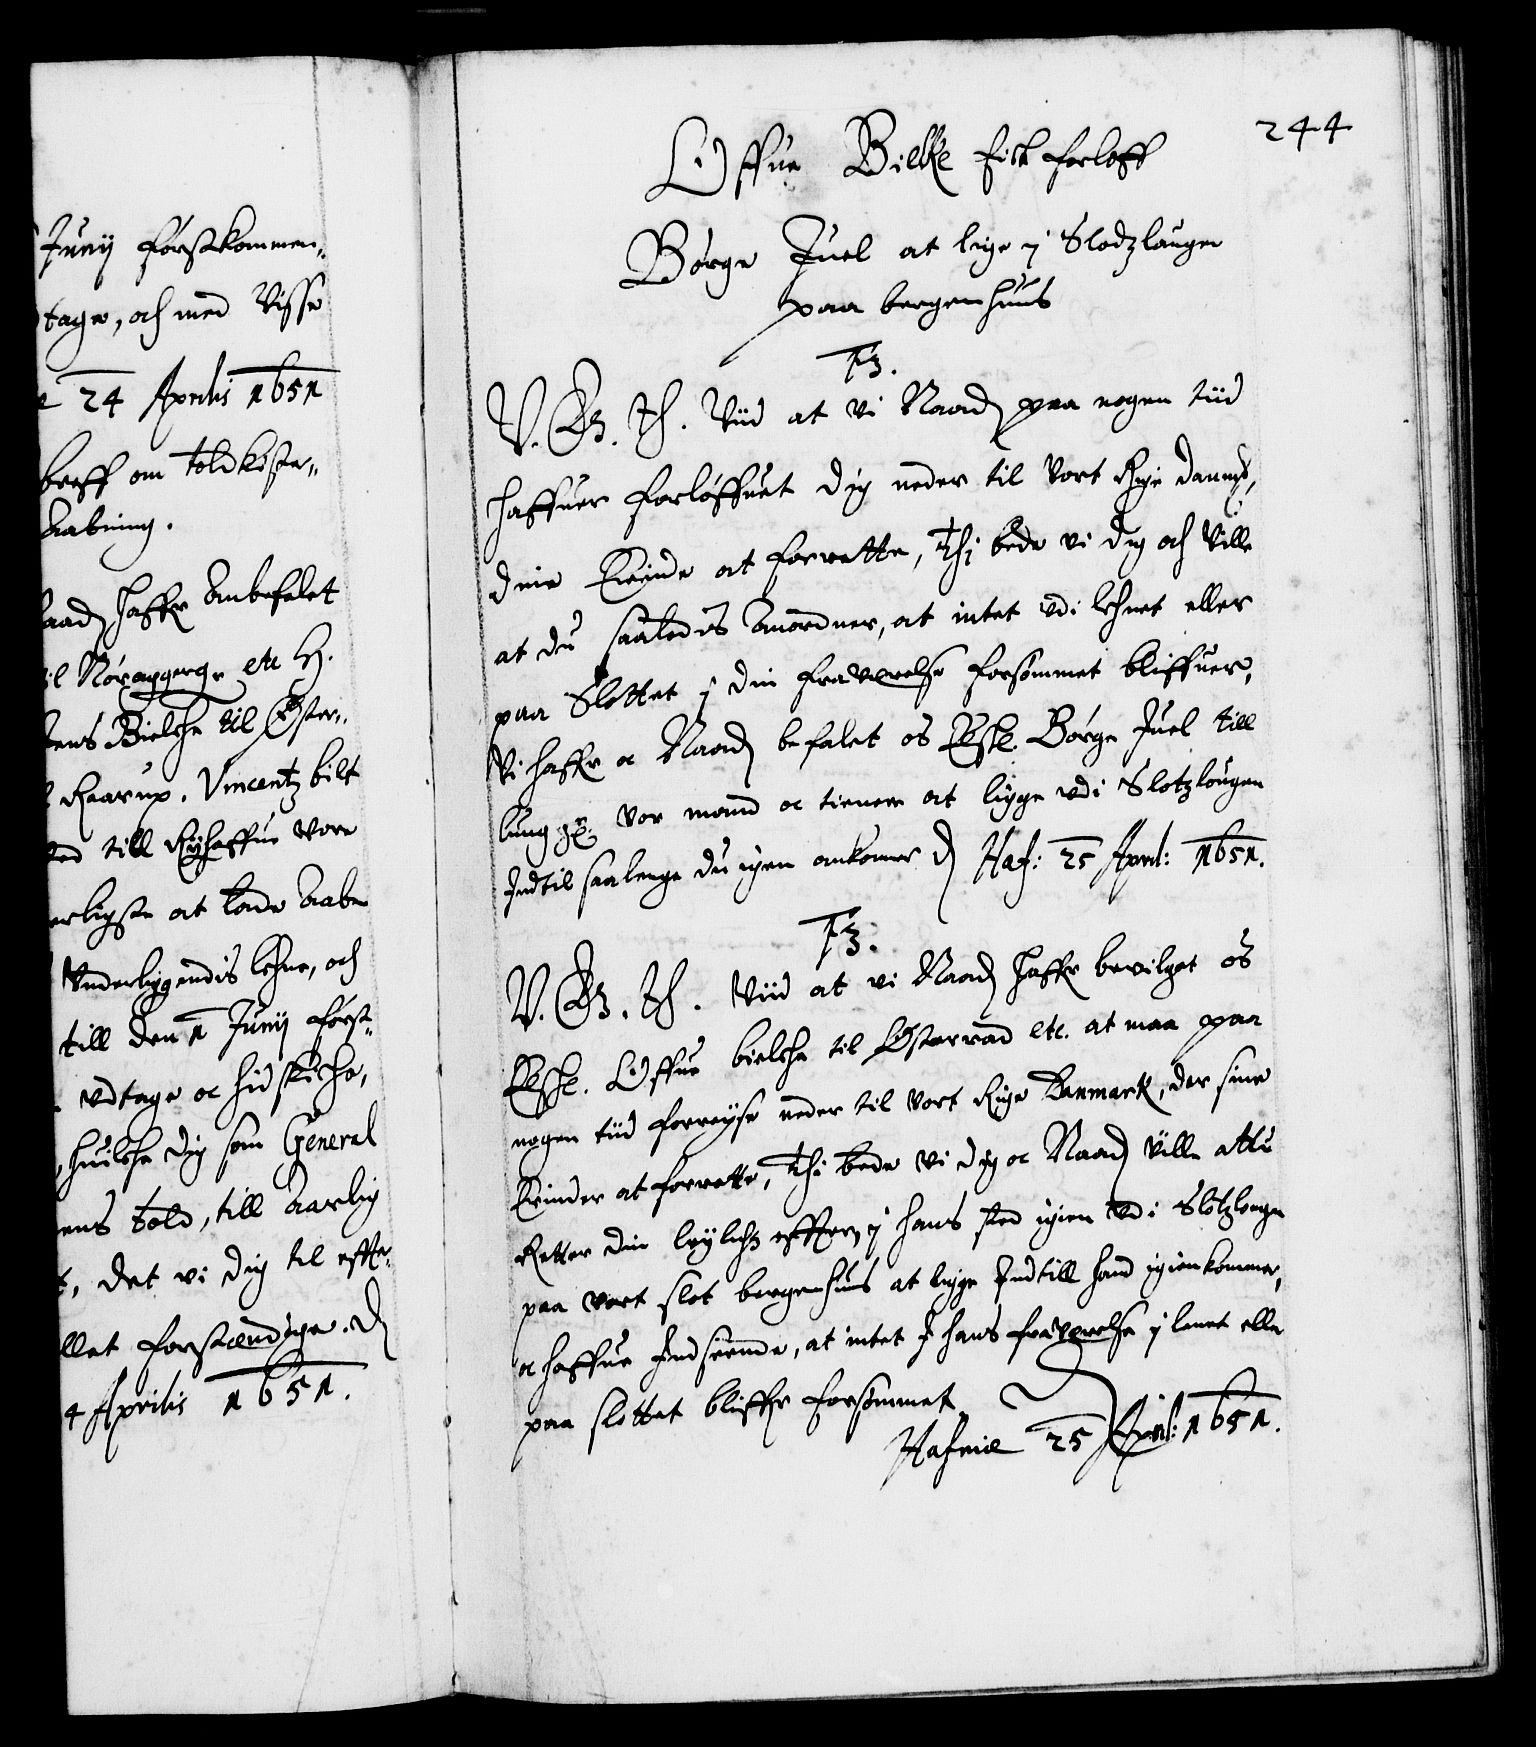 Junij førstkommen-
tage, och med Visse
24 Aprilis 1651
breff om toldkiste-
Aabning.
naad haffr Anbefalet
til Nøragger etc H.
Jens Bielche til Øster-
Raarup. Vincentz bilt
till Nÿhaffue Vore
erligste at lade Aabne
Vnderliggendis lehne, och
till den 1 Junij først-
vdtage oc hid skiche,
huilche dig som General
ens told, till Aarlig
t, det vi dig til effter-
llet forstændige. D
4 Aprilis 1651.
244
Offue Bielke fick forloff
Børge Juel at lige j Slodzlaugen
paa bergenhuus
F3.
V. G. T. Viid at Vi Naad paa nogen tiid
haffuer forløffuet dig neder til Vort Rige Danmk,
dine Erinde at forrette, Thj bede vi dig och Ville
at du saaledis Anordner, at intet vdi lehnet eller
paa Slottet j din fraværelse forsømmet bliffuer,
Vi haffr oc Naad befalet os Elskl. Børge Juel till
lung: vor mand oc tienere at ligge vdi Slotzlougen
Indtil saalenge du igen ankomer D Haf: 25 April: 1651.
F3.
V. G. T. Viid at vi Naad haffr bevilget os
Elskl. Offue bielche til Østeraad etc. at maa paa
nogen tiid forreÿse neder til Vort Rige Danmark, der sine
Erinder at forrette, Thi bede Vi dig oc Naad Ville attu
Retter din leÿlighed effter, j hans sted igien vdi Slotzlougen
paa Vort slot bergenhuus at ligge Indtill hand igienkommer,
oc haffue Indseende, at intet I hans fraværelse j lenet eller
paa slottet bliffr forsømmet
Hafniæ 25 April: 1651.